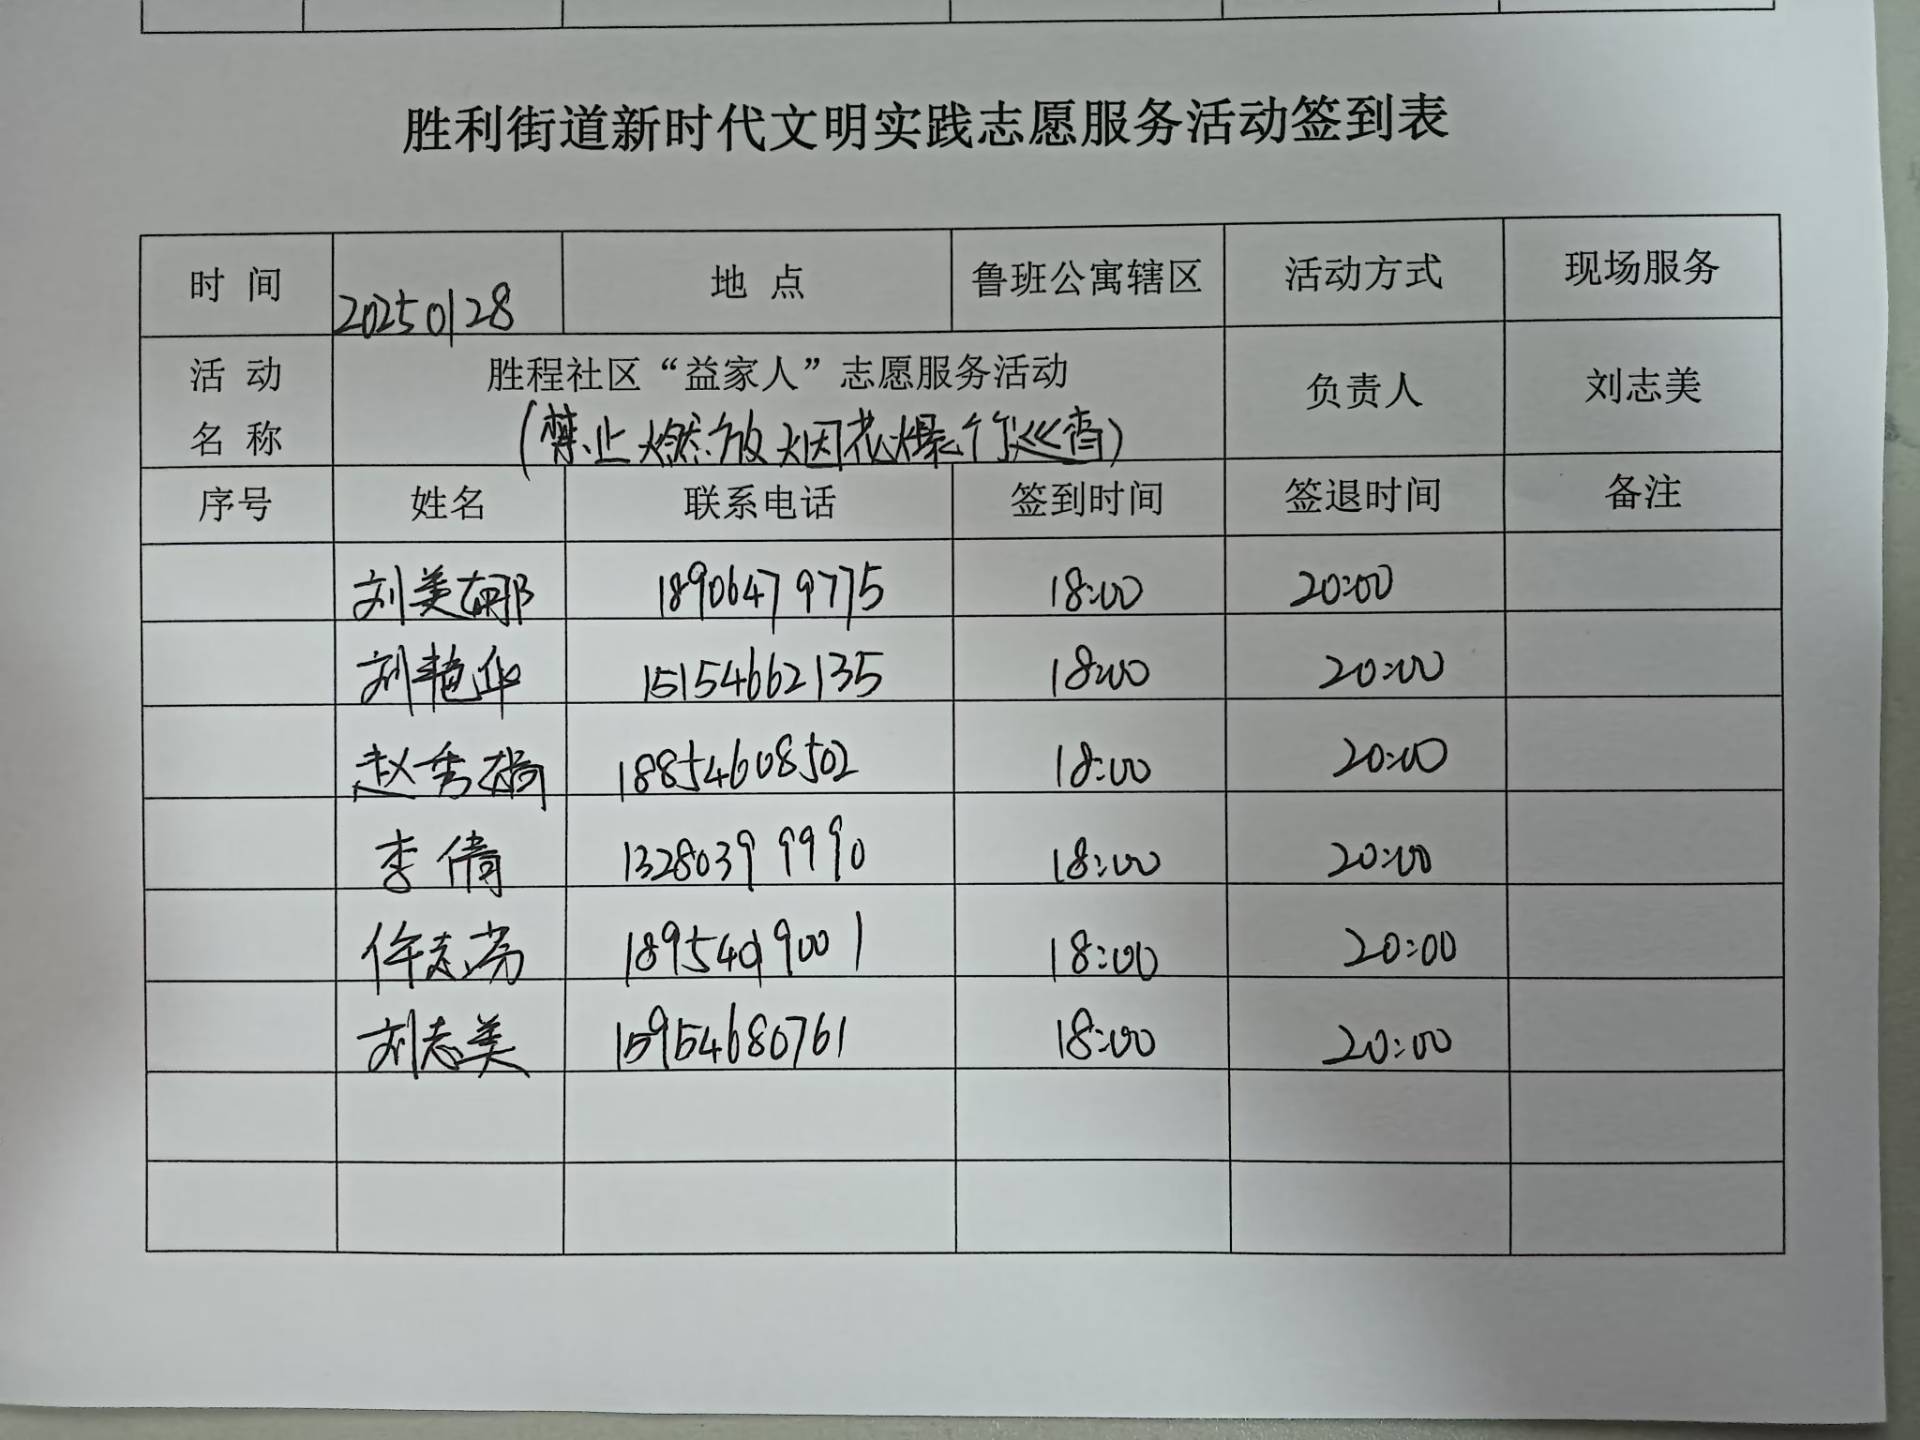 胜利街道新时代文明实践志愿服务活动签到表
时 间 20250128 地 点 鲁班公寓辖区 活动方式 现场服务
活 动 名 称 胜程社区“益家人”志愿服务活动 负责人 刘志美
(禁止燃放烟花爆竹巡查)
序号 姓名 联系电话 签到时间 签退时间 备注
刘美娜 18906479775 18:00 20:00
刘艳华 15154662135 18:00 20:00
赵秀 18854608502 18:00 20:00
李倩 13280399990 18:00 20:00
志芬 18954019001 18:00 20:00
刘志美 15954680761 18:00 20:00